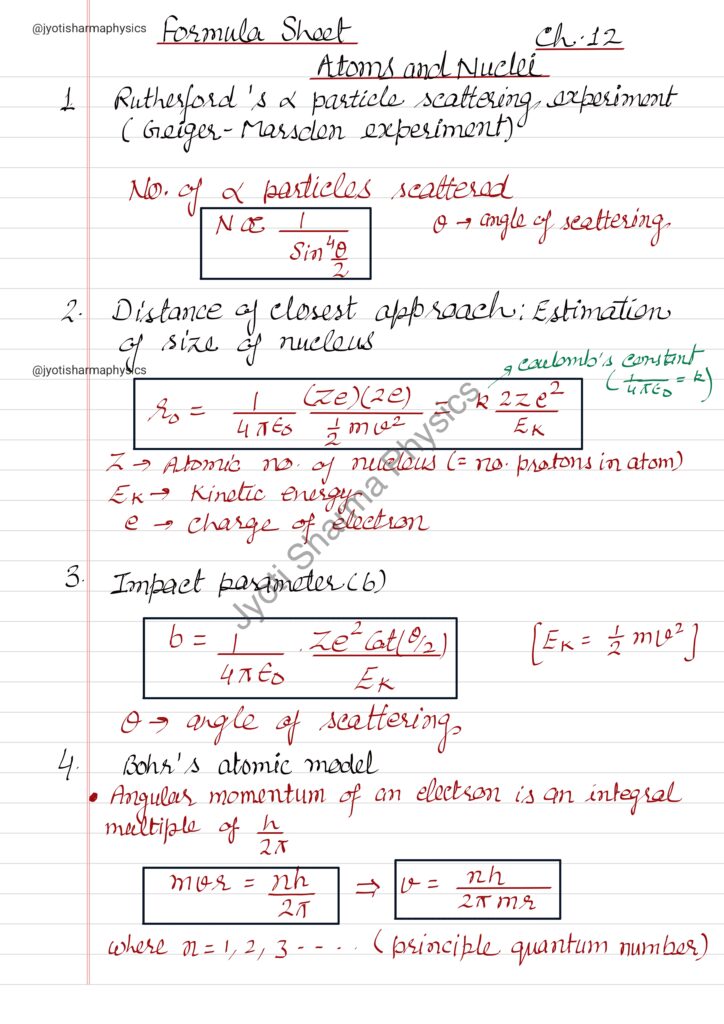 @jyotisharmaphysics
Formula Sheet
Ch. 12
Atoms and Nuclei
1. Rutherford's α particle scattering experiment
(Geiger-Marsden experiment)
No. of α particles scattered
N ∝ 1 / Sin⁴ θ/2
θ → angle of scattering
2. Distance of closest approach: Estimation
of size of nucleus
@jyotisharmaphysics
→ coulomb's constant
(1/4πε₀ = k)
r₀ = 1/4πε₀ (Ze)(2e) / ½mv² = k 2ze² / Eₖ
Z → Atomic no. of nucleus (= no. protons in atom)
Eₖ → Kinetic energy
e → charge of electron
Jyoti Sharma Physics
3. Impact parameter (b)
b = 1/4πε₀ . Ze² Cot(θ/2) / Eₖ
[Eₖ = ½ mv²]
θ → angle of scattering
4. Bohr's atomic model
• Angular momentum of an electron is an integral
multiple of h/2π
mvr = nh/2π ⇒ v = nh/2πmr
where n = 1, 2, 3 - - - - (principle quantum number)